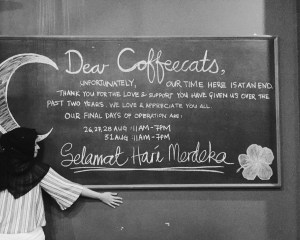 Dear Coffeecats,
UNFORTUNATELY, OUR TIME HERE IS AT AN END.
THANK YOU FOR THE LOVE & SUPPORT YOU HAVE GIVEN US OVER THE
PAST TWO YEARS. WE LOVE & APPRECIATE YOU ALL.
OUR FINAL DAYS OF OPERATION ARE:
26,27,28 AUG // 11AM-7PM
31 AUG // 11AM-7PM
Selamat Hari Merdeka